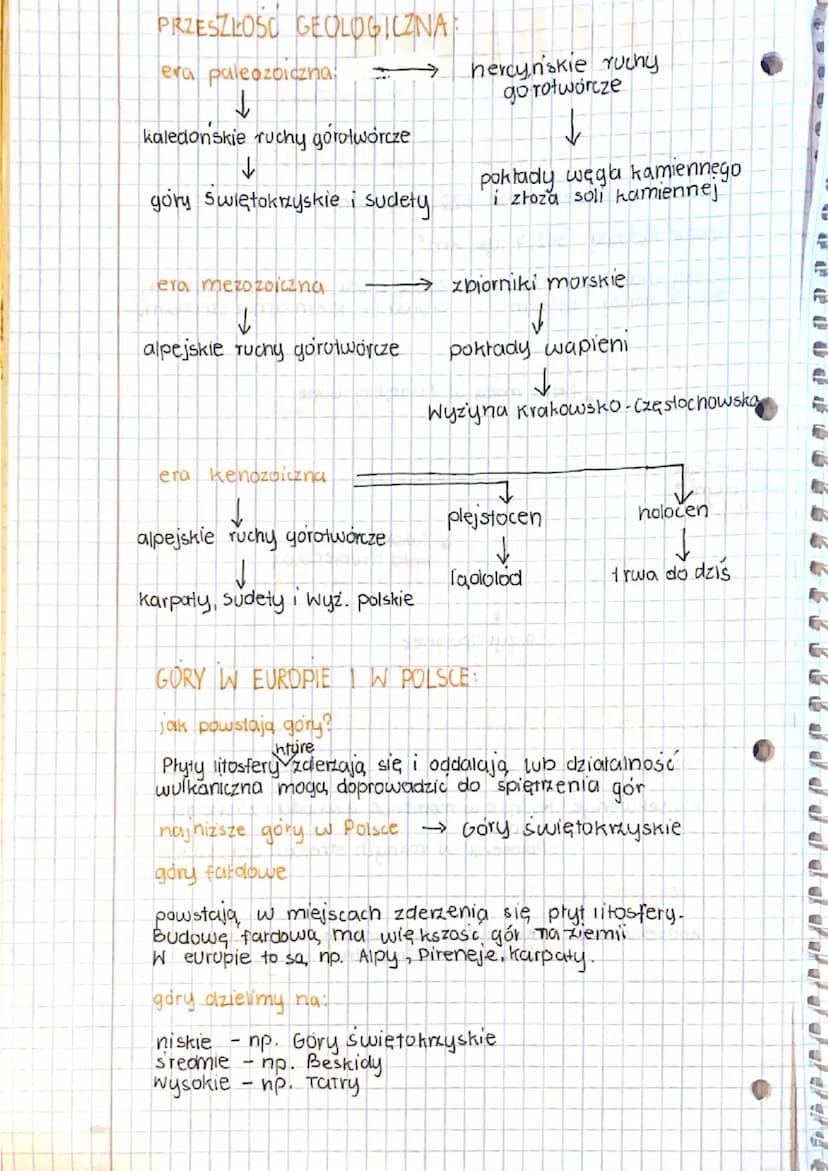 PRZESZŁOŚĆ GEOLOGICZNA:
era paleozoiczna: → hercyńskie ruchy
gorotwórcze
↓ ↓
kaledońskie ruchy górotwórcze
↓
pokłady węgla kamiennego
góry świętokrzyskie i sudety i złoża soli kamiennej
era mezozoiczna → zbiorniki morskie
↓ ↓
alpejskie ruchy górotwórcze pokłady wapieni
↓
Wyżyna Krakowsko-Częstochowska
era kenozoiczna
↓ plejstocen holocen
alpejskie ruchy górotwórcze
↓ ↓ ↓
lądolód trwa do dziś
karpaty, sudety i wyż. polskie
GÓRY W EUROPIE I W POLSCE:
jak powstają góry?
które
Płyty litosfery zderzają się i oddalają lub działalność
wulkaniczna mogą doprowadzić do spiętrzenia gór
najniższe góry w Polsce → Góry świętokrzyskie
góry fałdowe
powstają w miejscach zderzenia się płyt litosfery.
Budowę fardową ma większość gór na ziemii
W europie to są np. Alpy, Pireneje, Karpaty.
góry dzielimy na:
niskie - np. Góry świętokrzyskie
średnie - np. Beskidy
wysokie - np. Tatry